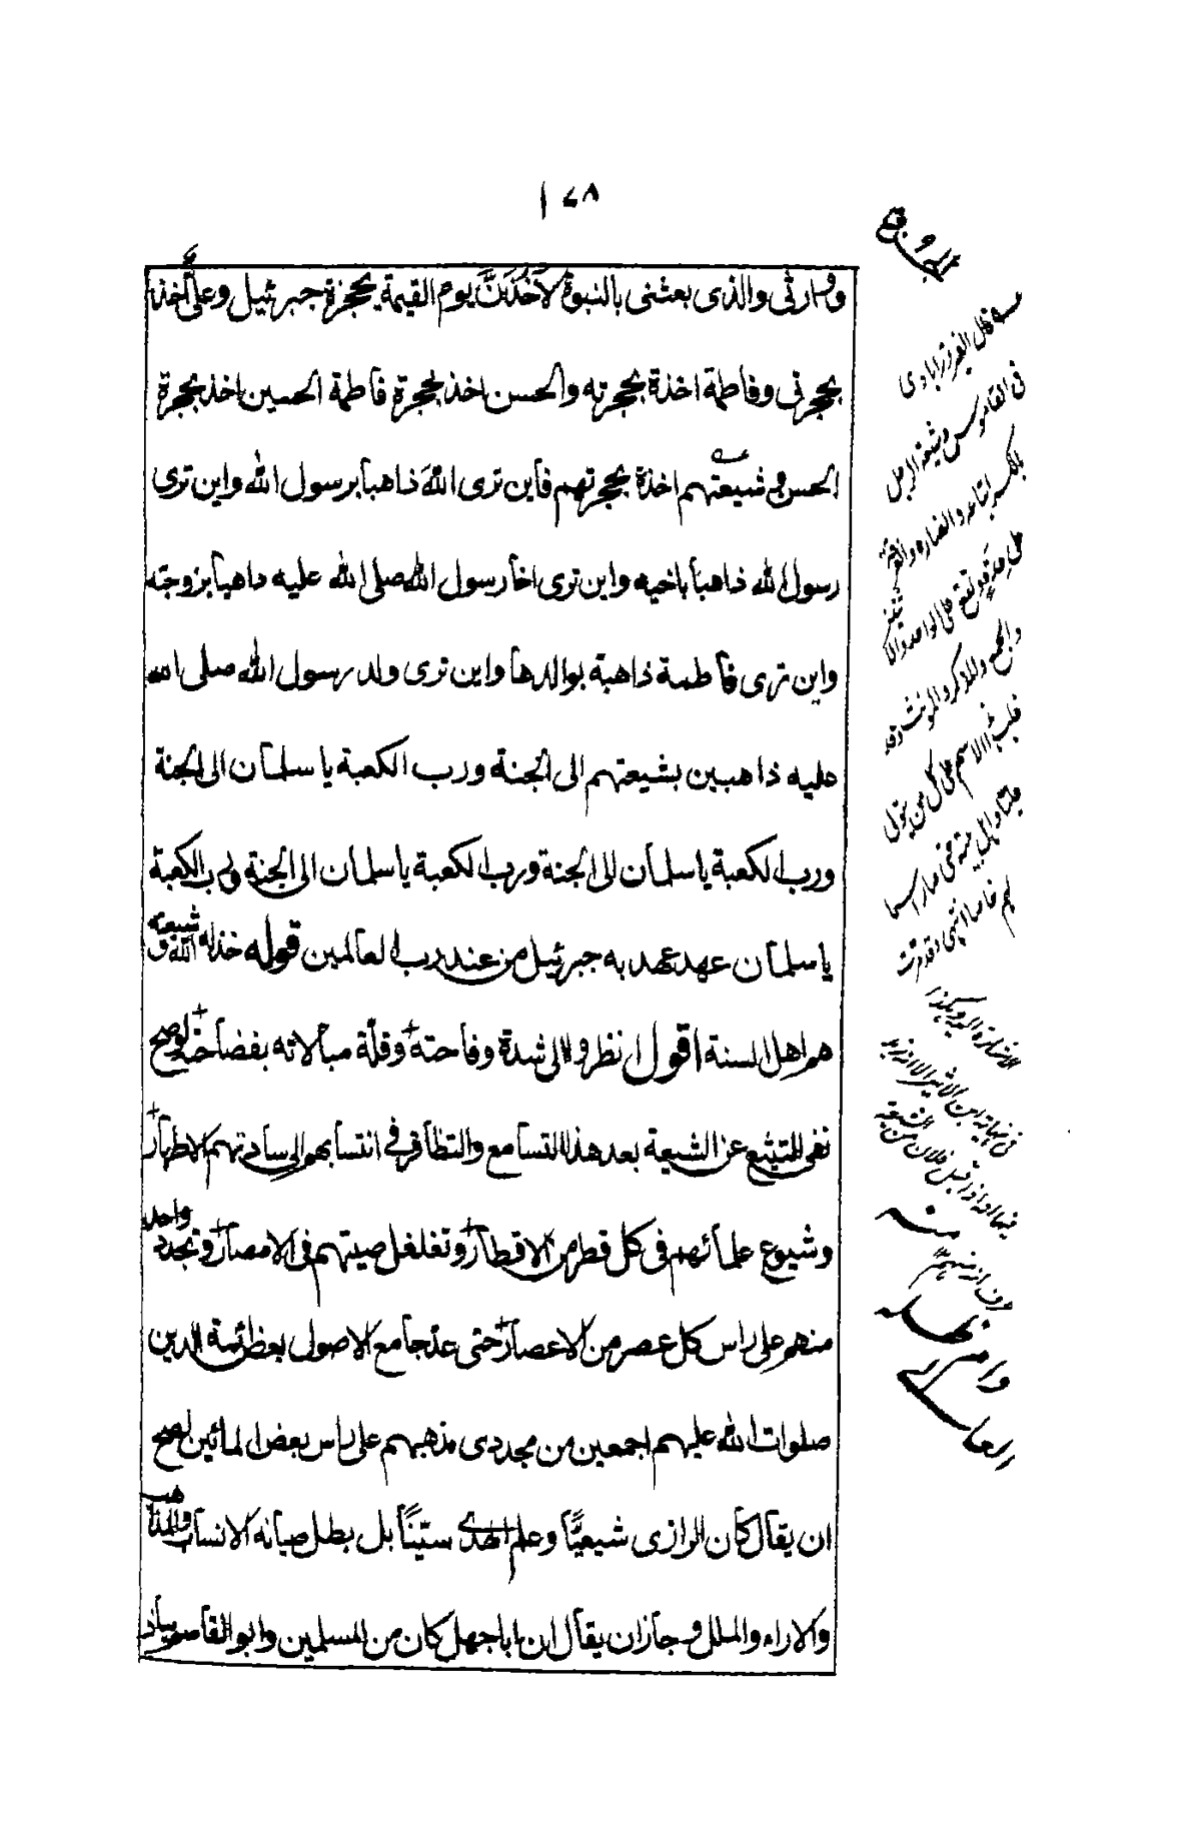 ١٧٨
ووارثى والذى بعثنى بالنبوة لآخُذَنَّ يوم القيمة بحجزة جبرئيل وعلىٌّ آخذ
بحجزتى وفاطمة اخذة بحجزته والحسن اخذ بحجزة فاطمة الحسين اخذ بحجزة
الحسن وشيعتهم اخذة بحجزتهم فأين ترى اللهَ ذاهبا برسول الله واين ترى
رسول الله ذاهبا باخيه واين ترى اخا رسول الله صلى الله عليه داهبا بزوجته
واين ترى فاطمة ذاهبة بوالدها واين ترى ولد رسول الله صلى الله
عليه ذاهبين بشيعتهم الى الجنة ورب الكعبة يا سلمان الى الجنة
ورب الكعبة يا سلمان الى الجنة ورب الكعبة يا سلمان الى الجنة ورب الكعبة
يا سلمان عهد عهد به جبرئيل من عند رب العالمين قوله خذله الله وشيعته
هم اهل السنة اقول انظروا الى شدة وقاحته وقلّة مبالاته بفضاحته لو صح
نفى التشيع عن الشيعة بعد هذا التسامع والتظافر فى انتسابهم الى سادتهم الاطهار
وشيوع علمائهم فى كل قطر من الاقطار وتغلغل صيتهم فى الامصار وتجدد واحد
منهم على راس كل عصر من الاعصار حتى عدّ جامع الاصول بعض ائمة الدين
صلوات الله عليهم اجمعين من مجددى مذهبهم على راس بعض المائين لصح
ان يقال كان الرازى شيعيًّا وعلم الهدى سنّيًّا بل بطل صيانة الانساب والمذاهب
والاراء والملل وجاز ان يقال ان ابا جهل كان من المسلمين وابو القاسم
قال الفيروزابادى
فى القاموس وشيعة الرجل
بالكسر اتباعه وانصاره والفرقة
على حدة وتقع على الواحد والاثنين
والجمع والمذكر والمونث وقد
غلب هذا الاسم على كل من يتولى
عليا واهل بيته حتى صار اسما
لهم خاصا انتهى وقد مرت
الاشارة اليه وهكذا
فى نهاية ابن الاثير الا انه زاد
فيها انه اذا قيل فلان من الشيعة
عرف انه منهم
منه